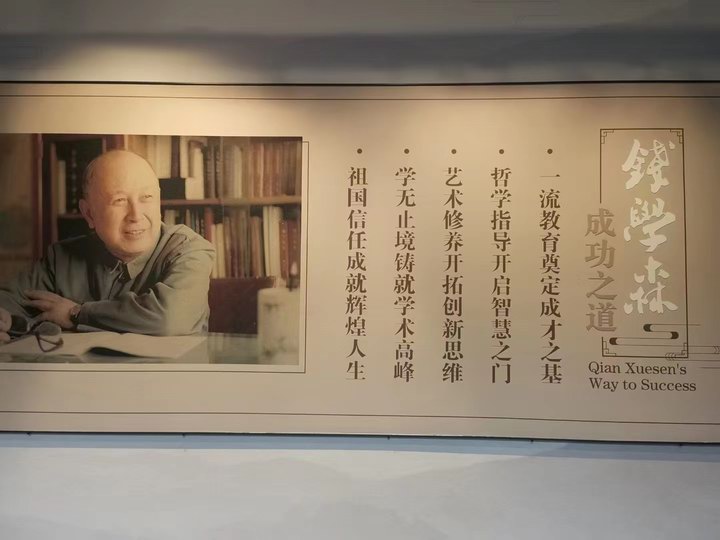 錢學森
成功之道
Qian Xuesen's
Way to Success
• 一流教育奠定成才之基
• 哲学指导开启智慧之门
• 艺术修养开拓创新思维
• 学无止境铸就学术高峰
• 祖国信任成就辉煌人生